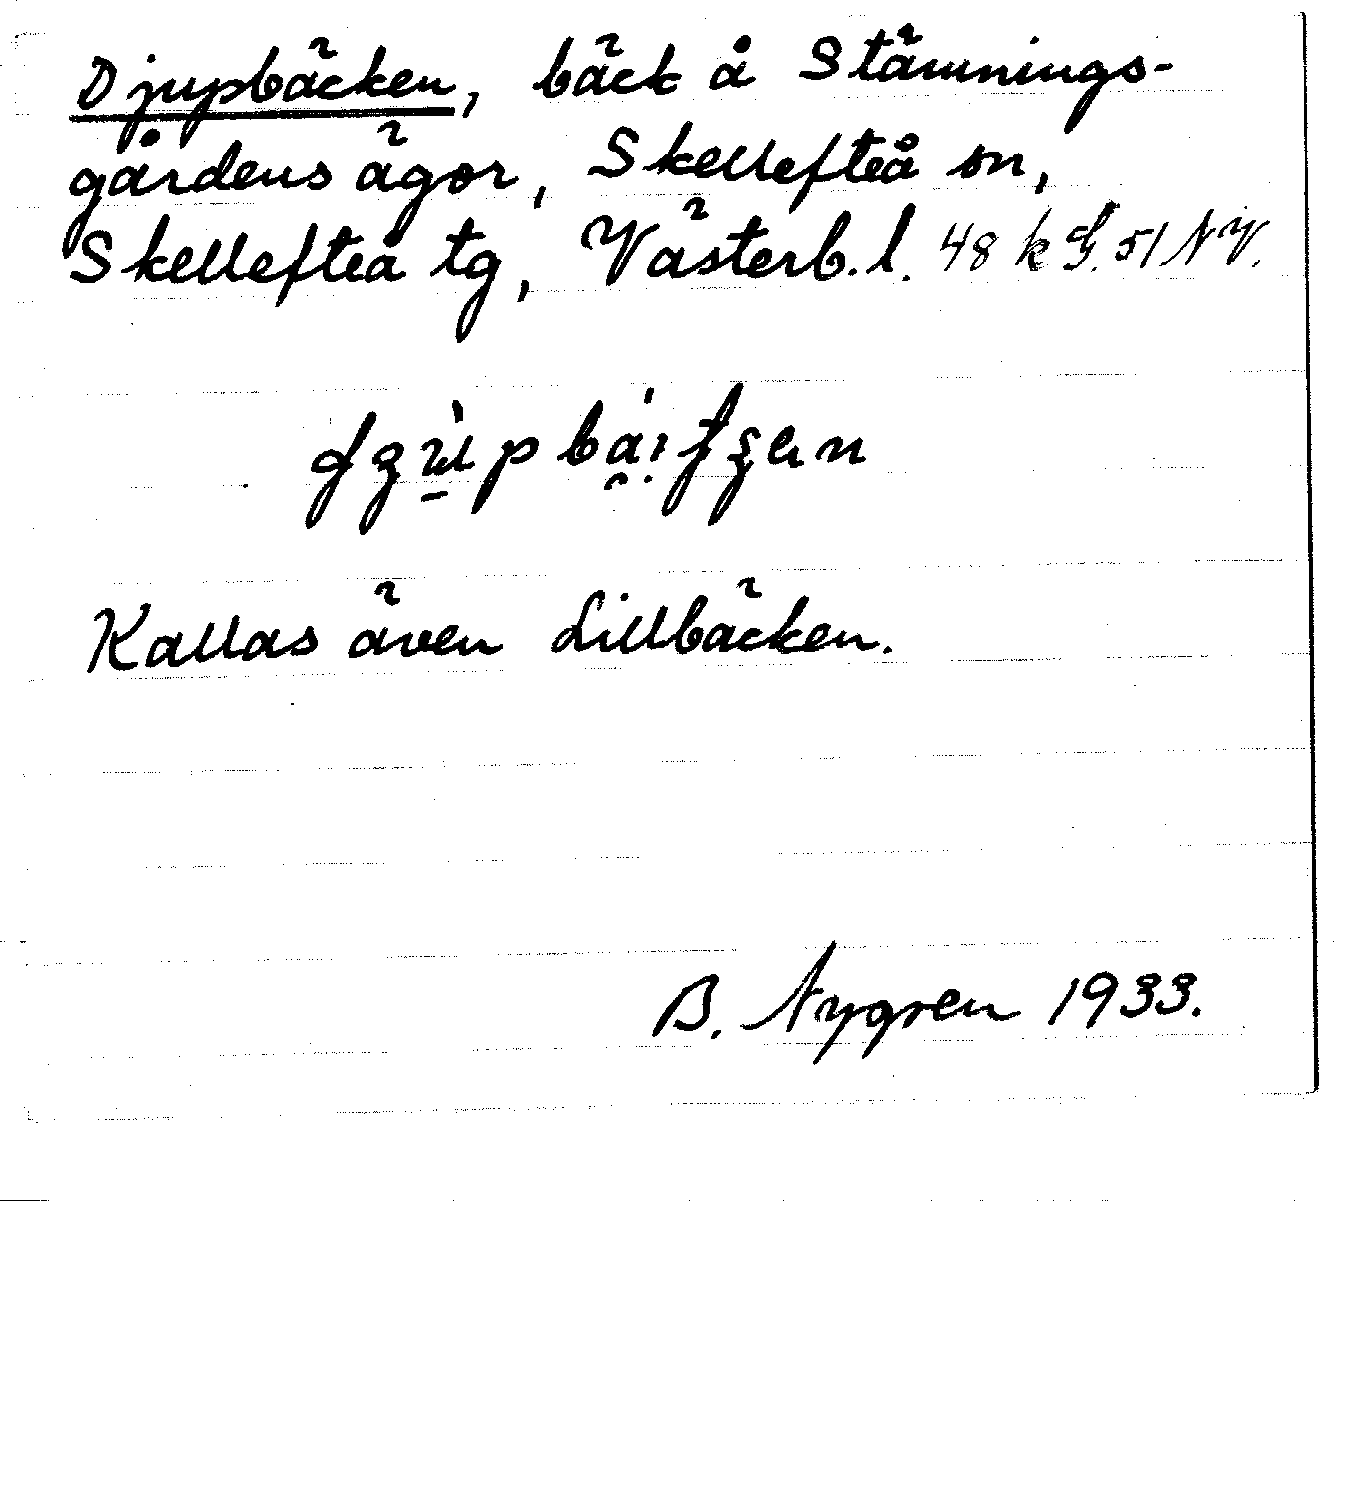 Djupbäcken, bäck å Stämnings-
gårdens ägor, Skellefteå sn,
Skellefteå tg, Västerb. l. 48 k G. 51 NV.
Kallas även Lillbäcken.
B. Nygren 1933.